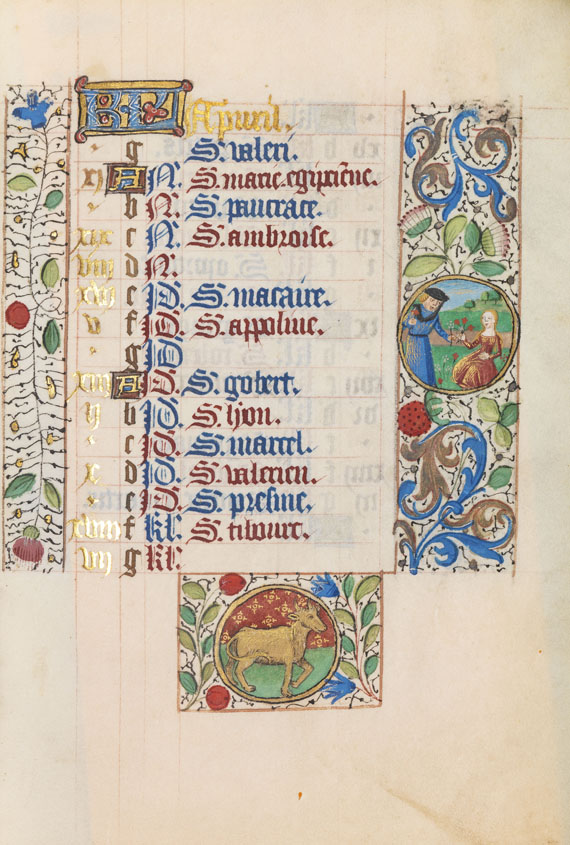 KL Apuril.
g S. valeri.
xj A N. S. marie egiptiēne.
b N. S. pancrace.
xix c N. S. ambroise.
viij d N.
xvj e JD. S. macaire.
v f JD. S. appoline.
g JD
xiij A JD. S. gobert.
ij b JD. S. lyon.
c JD. S. marcel.
x d JD. S. valerien.
e JD. S. presine.
xviij f kl. S. tibourc.
vij g kl.